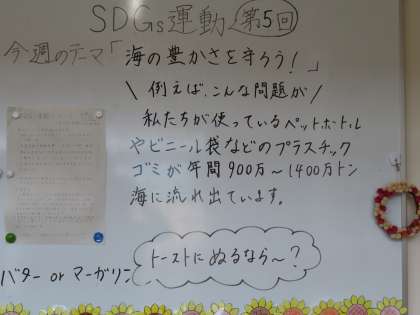 SDGs運動 第5回
今週のテーマ「海の豊かさを守ろう!」
\ 例えば、こんな問題が /
私たちが使っているペットボトル
やビニール袋などのプラスチック
ゴミが年間900万〜1400万トン
海に流れ出ています。
トーストにぬるなら〜?
バター or マーガリン